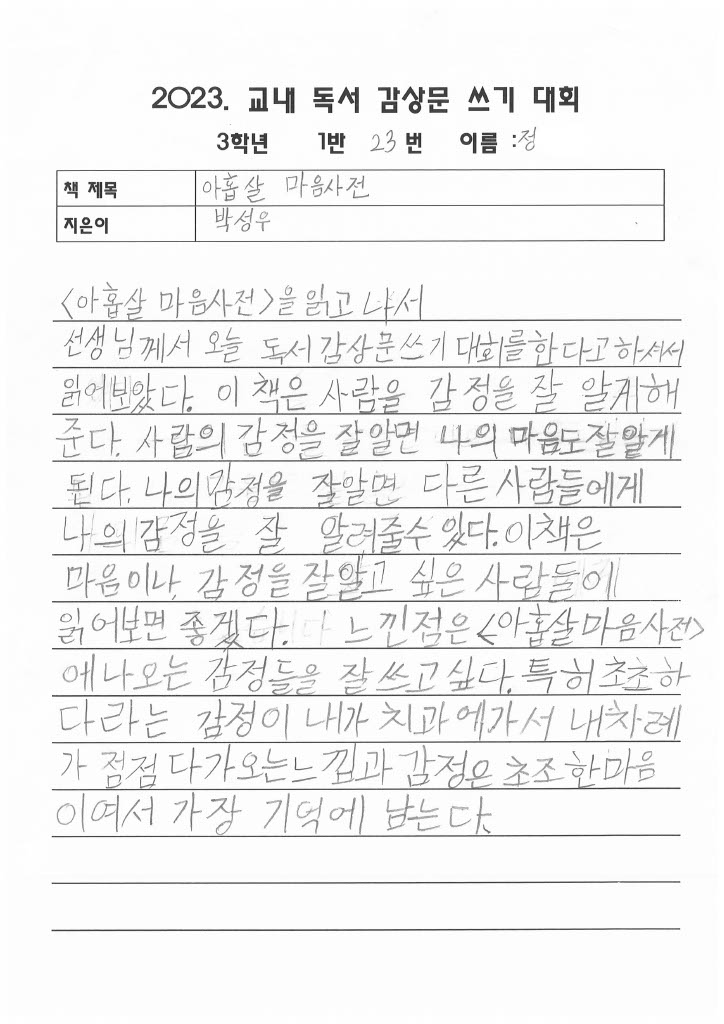 2023. 교내 독서 감상문 쓰기 대회
3학년 1반 23번 이름 :정
책 제목 아홉살 마음사전
지은이 박성우
<아홉살 마음사전>을 읽고 나서
선생님께서 오늘 독서감상문쓰기대회를한다고하셔서
읽어보았다. 이 책은 사람을 감정을 잘 알게해
준다. 사람의 감정을 잘알면 나의 마음도잘알게
된다. 나의감정을 잘알면 다른 사람들에게
나의감정을 잘 알려줄수 있다. 이책은
마음이나, 감정을 잘알고 싶은 사람들이
읽어보면 좋겠다. 느낀점은 <아홉살마음사전>
에나오는 감정들을 잘쓰고싶다. 특히초초하
다라는 감정이 내가 치과에가서 내차례
가 점점 다가오는느낌과 감정은 초조한마음
이여서 가장 기억에 남는다.